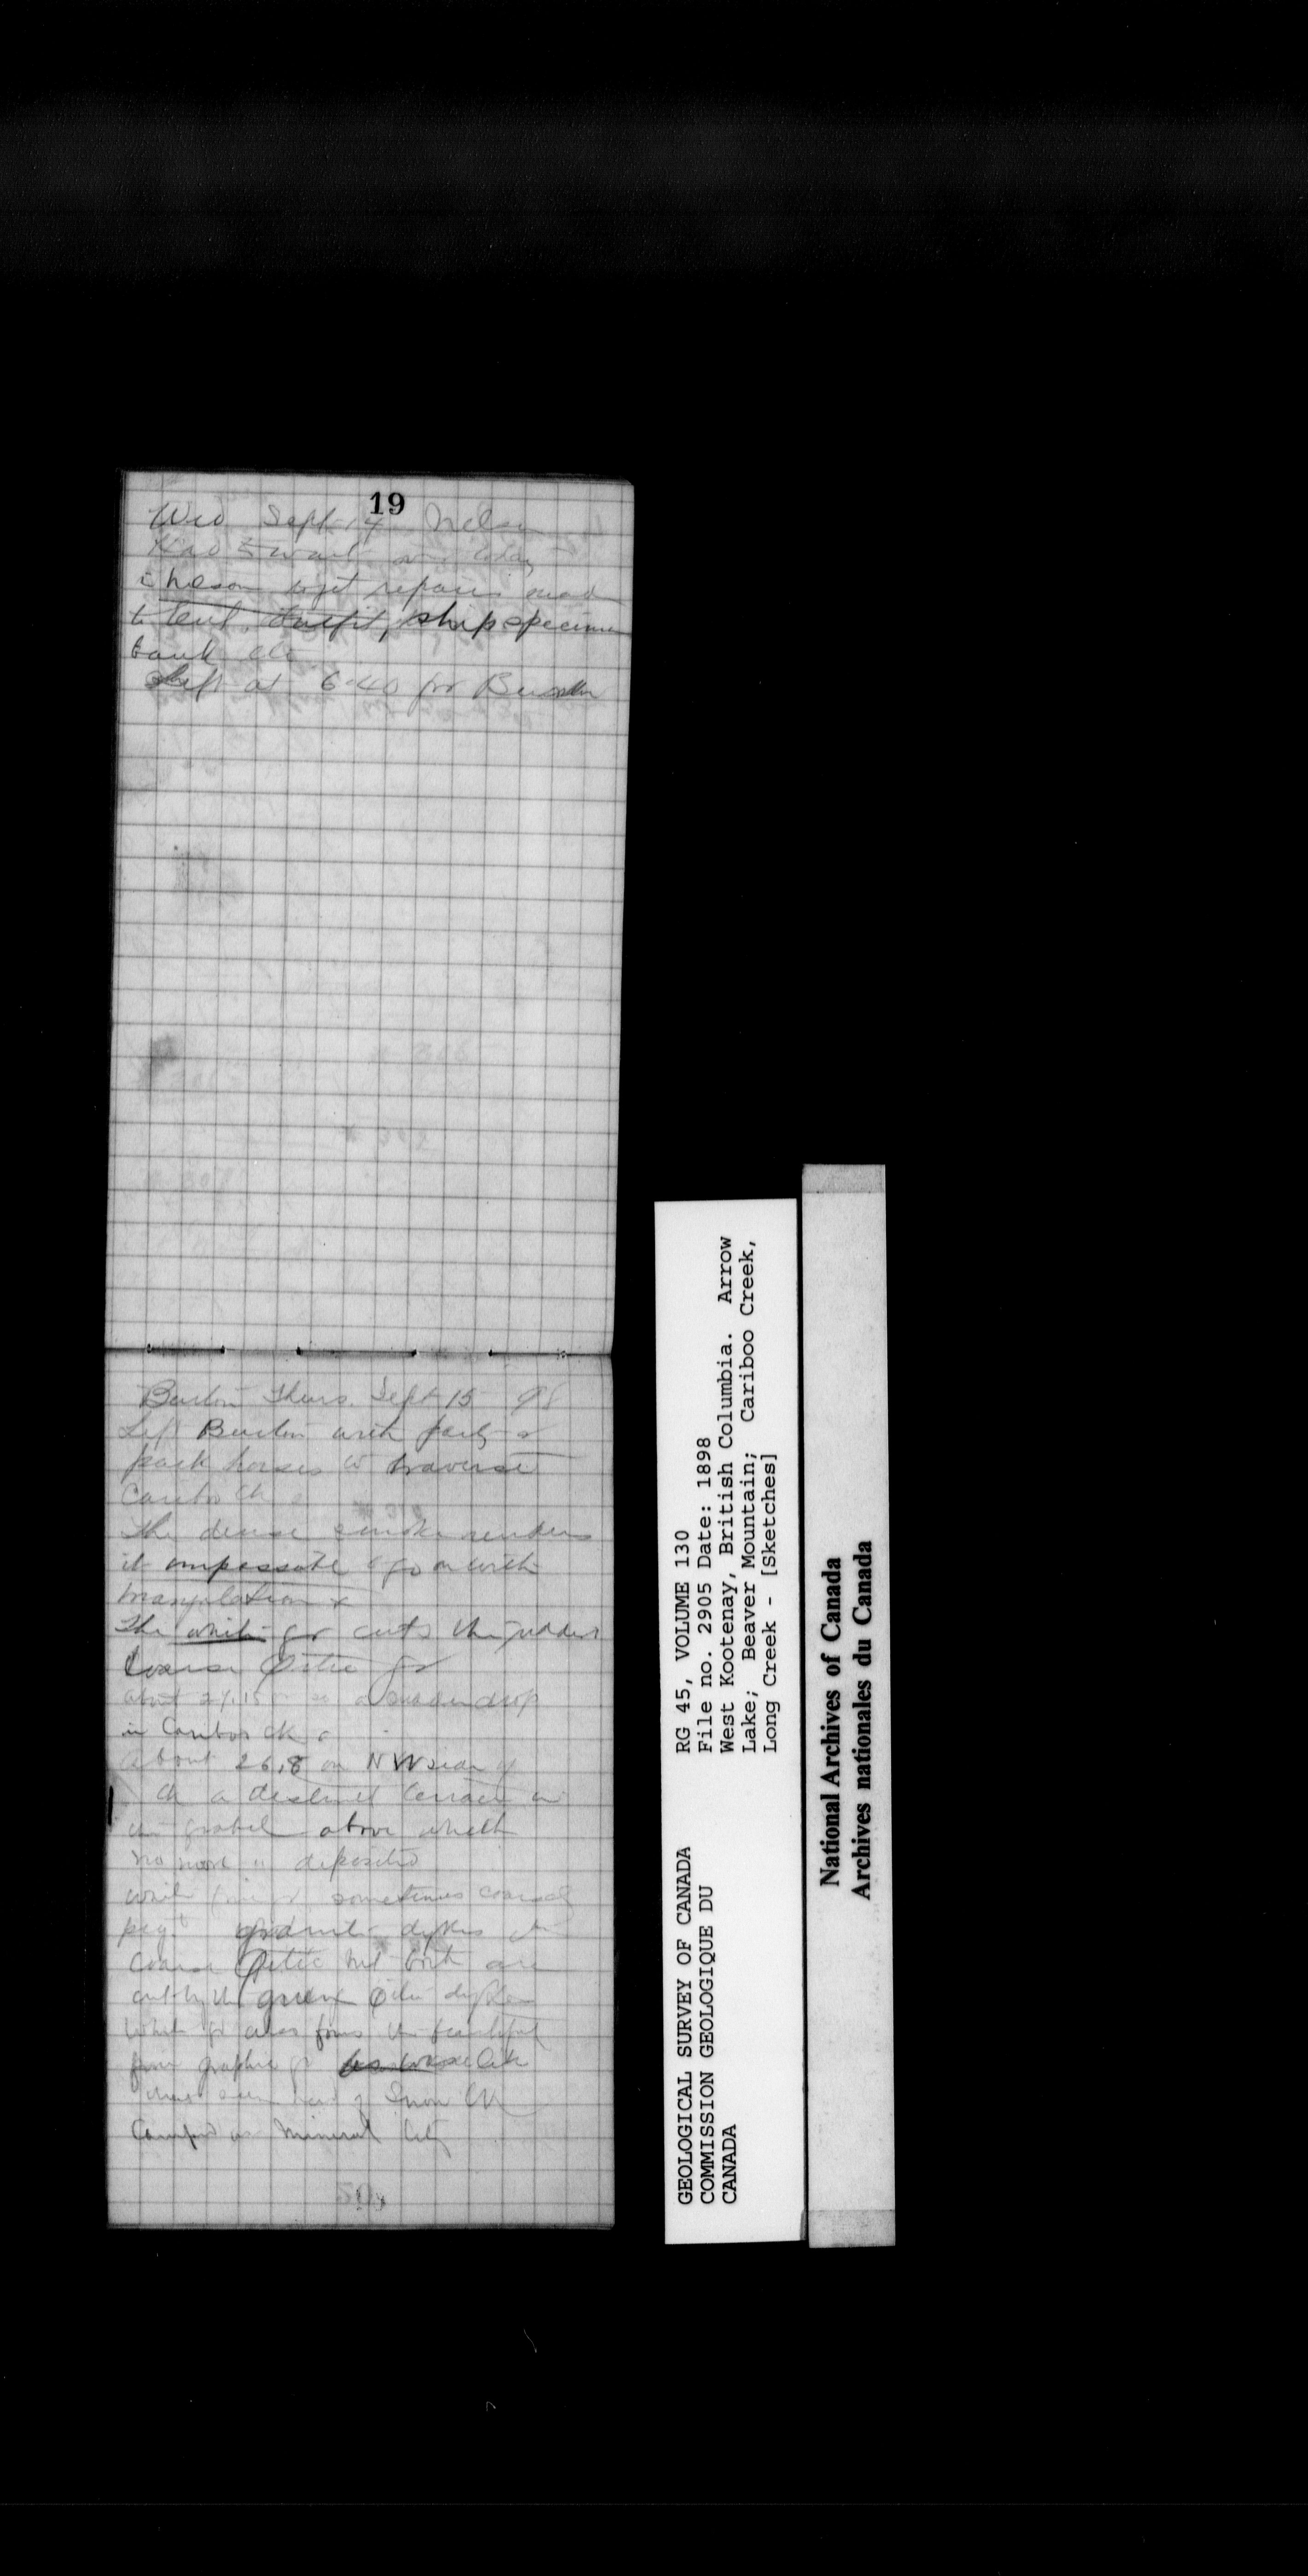 19
Wed Sept 14 Nelson
Had to wait over today
in Nelson to get repairs made
to tent, outfit, ship specimens
bank etc
Left at 6.40 for Burton
Burton Thurs. Sept 15 98
Left Burton with party &
pack horses to traverse
Caribo Ck
The dense smoke renders
it impossible to go on with
triangulation &
The white gr cuts the
coarse gr
about a sudden drop
in Caribos ck
About 26.8 on NW side of
Ck a distinct terrace in
the gravel above which
no more is deposited
white sometimes coarsely
peg. dykes
coarse but both are
cut by the green dykes
White gr also forms the beautiful
fine graphic gr
Snow Ck
Camped at Mineral City
RG 45, VOLUME 130
File no. 2905 Date: 1898
West Kootenay, British Columbia. Arrow
Lake; Beaver Mountain; Cariboo Creek,
Long Creek - [Sketches]
GEOLOGICAL SURVEY OF CANADA
COMMISSION GEOLOGIQUE DU
CANADA
National Archives of Canada
Archives nationales du Canada